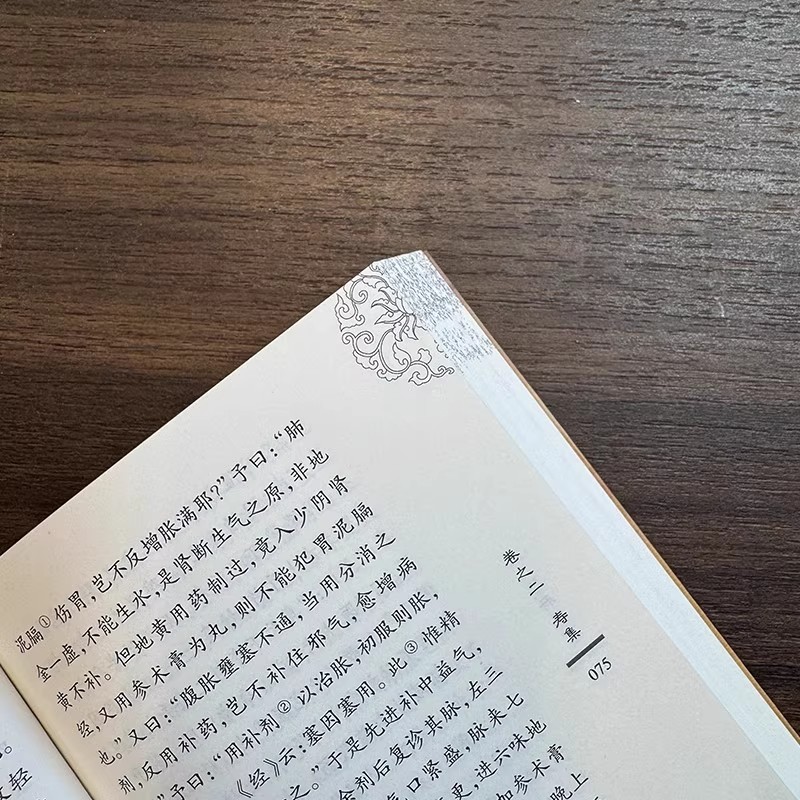 泥膈①伤胃，岂不反增胀满耶？”予曰：“肺
金一虚，不能生水，是肾断生气之原，非地
黄不补。但地黄用药制过，竟入少阴肾
经，又用参术膏为丸，则不能犯胃泥膈
也。”又曰：“腹胀壅塞不通，当用分消之
剂，反用补药，岂不补住邪气，愈增病
”予曰：“用补剂②以治胀，初服则胀，
《经》云：塞因塞用。此③惟精
之。”于是先进补中益气，
剂后复诊其脉，左三
气口紧盛，脉来七
更，进六味地
加参术膏
晚上
卷之二 寿集
075
。
轻